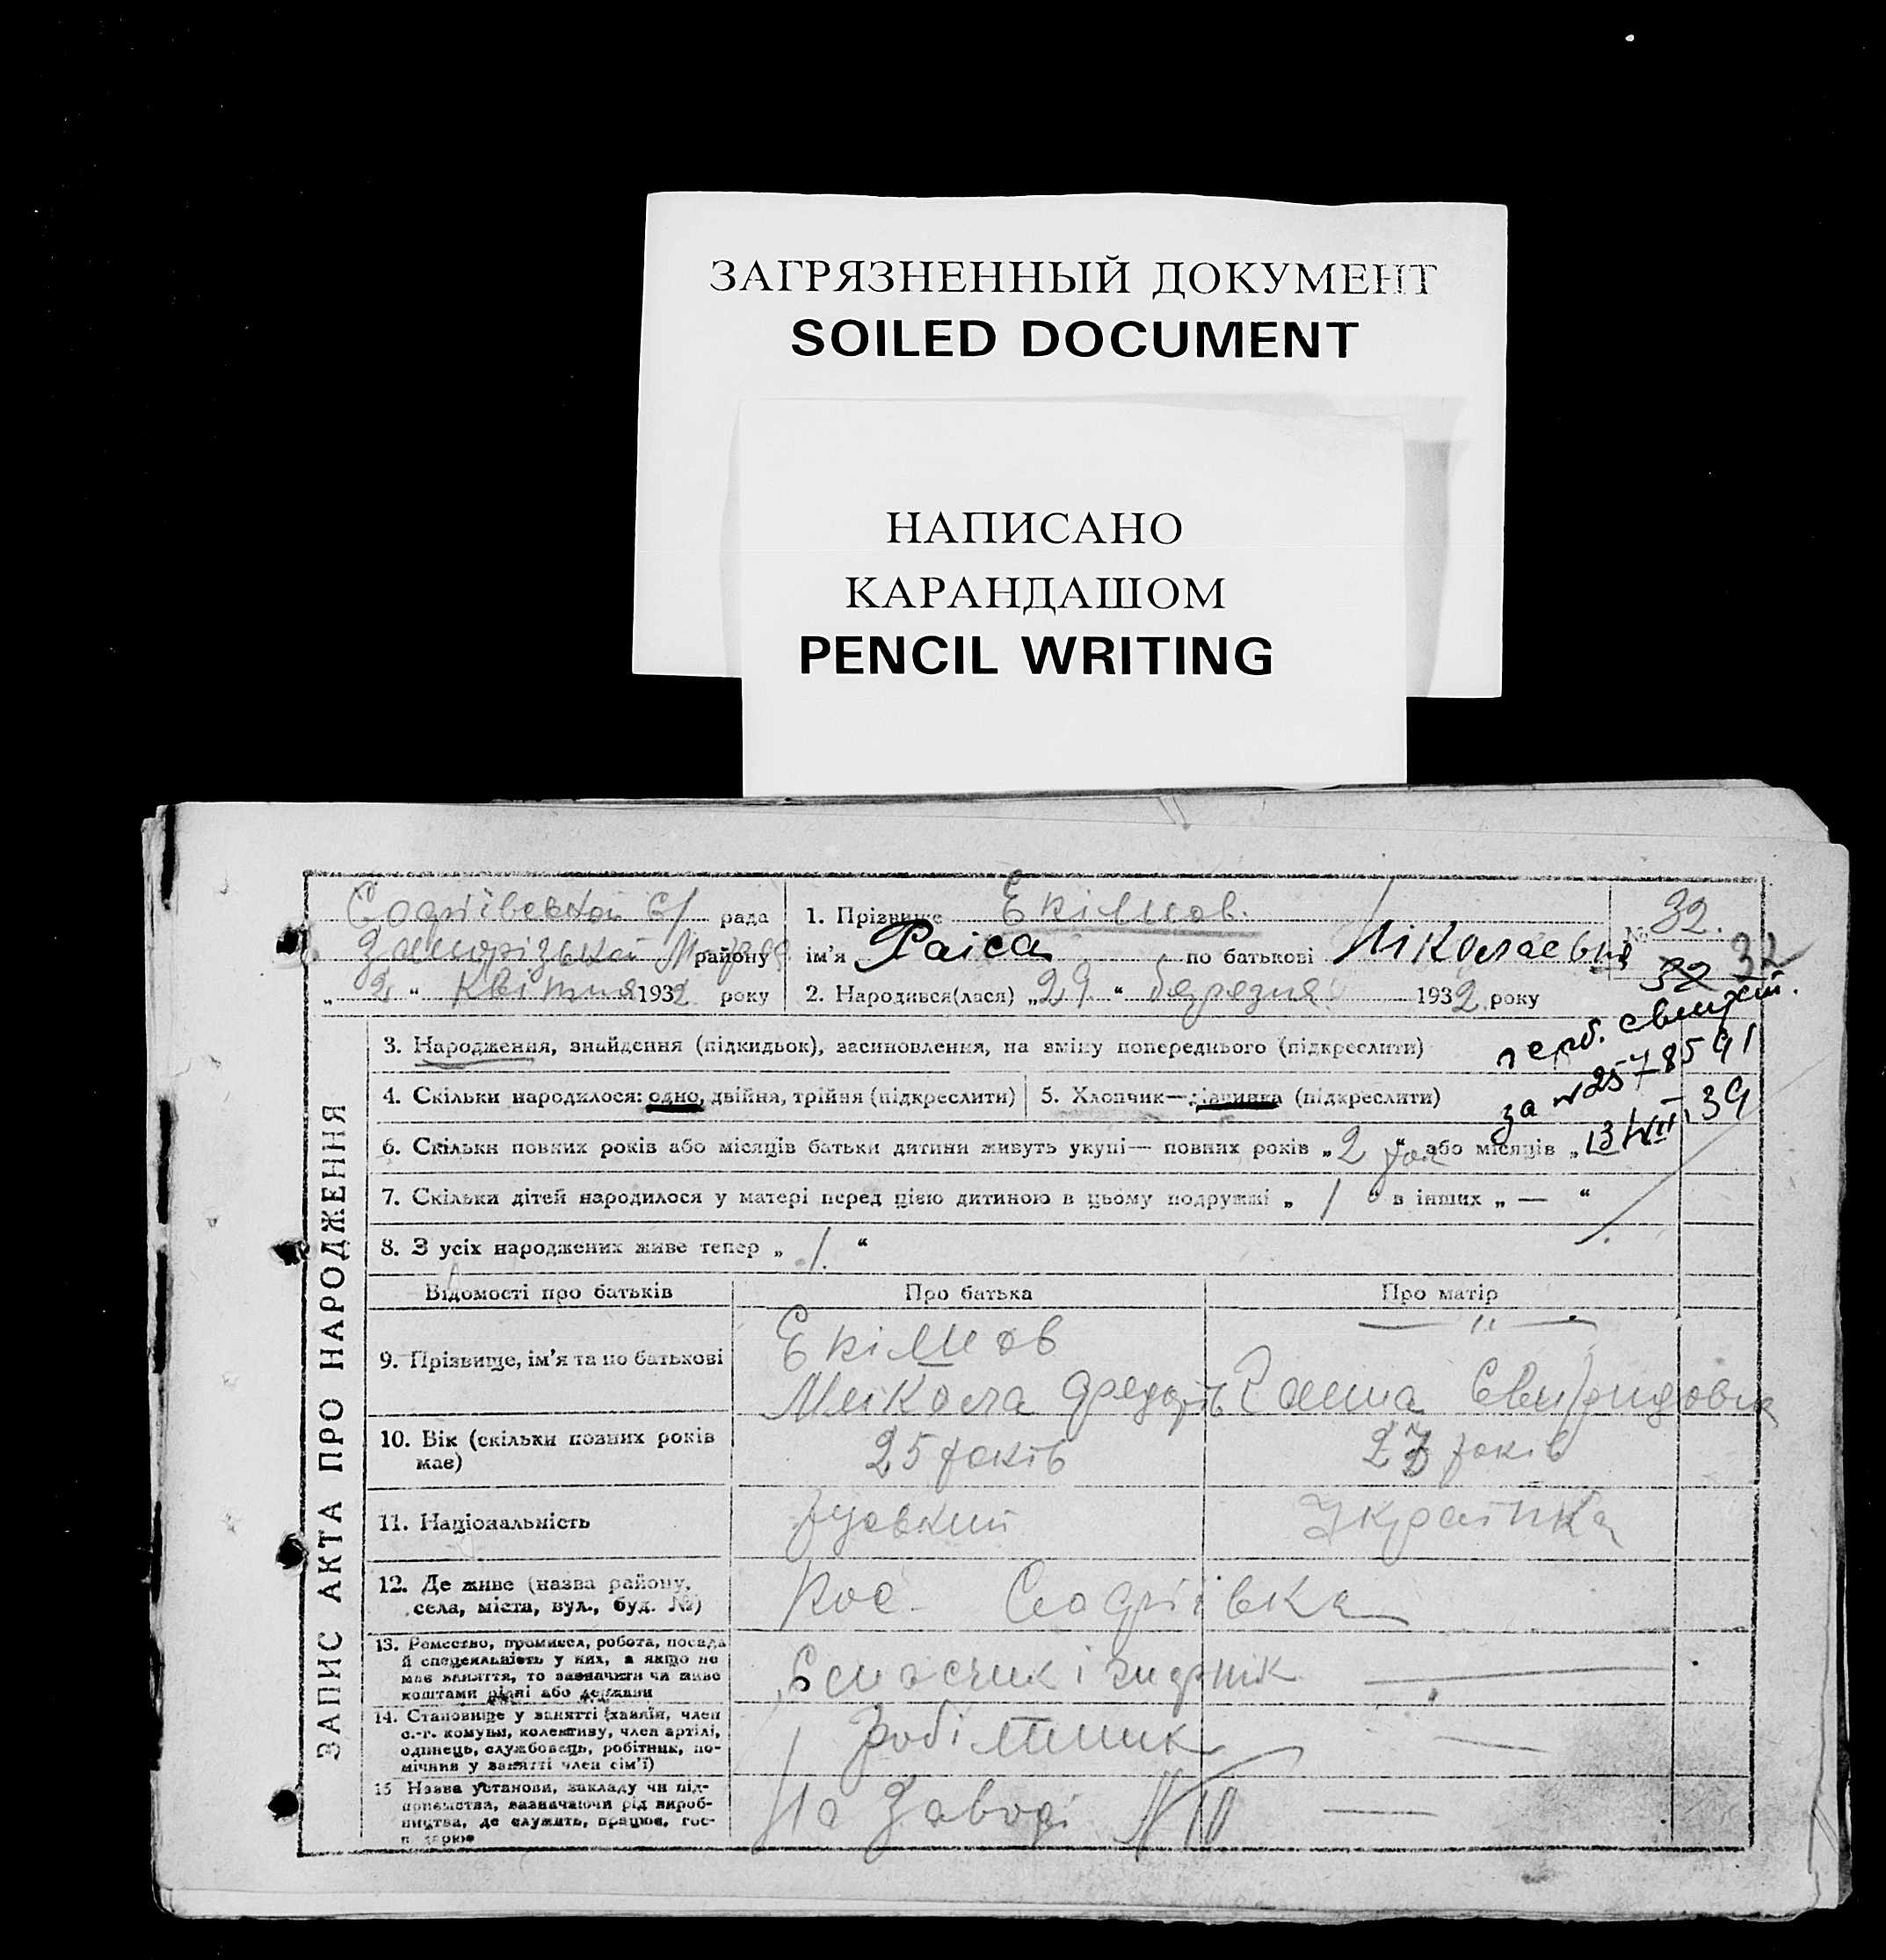 ЗАГРЯЗНЕННЫЙ ДОКУМЕНТ
SOILED DOCUMENT
НАПИСАНО
КАРАНДАШОМ
PENCIL WRITING
ЗАПИС АКТА ПРО НАРОДЖЕННЯ
Софіївської с/ рада
району
„ 2 “ Квітня 1932 року
1. Прізвище Екімов.
ім'я Раіса по батькові Ніколаевна
2. Народився(лася) „29“ березня 1932 року
№ 32.
32 32
3. Народження, знайдення (підкидьок), засиновлення, на зміну попереднього (підкреслити)
4. Скільки народилося: одно, двійня, трійня (підкреслити)
5. Хлопчик—дівчинка (підкреслити)
за № 2578591
13/VII.39
6. Скільки повних років або місяців батьки дитини живуть укупі— повних років „2“ або місяців „
7. Скільки дітей народилося у матері перед цією дитиною в цьому подружжі „ 1 “ в інших „ — “
8. З усіх народжених живе тепер „ 1. “
Відомості про батьків Про батька Про матір
9. Прізвище, ім'я та по батькові Екімов — " —
Микола Федорів Ганна Свиридовна
10. Вік (скільки повних років
має) 25 років 27 років
11. Національність руський Українка
12. Де живе (назва району,
села, міста, вул., буд. №) Кос. Софіївка
13. Ремество, промисел, робота, посада
й спеціяльність у них, а якщо не
має заняття, то зазначити чи живе
коштами рідні або держави
—
14. Становище у занятті (хазяїн, член
с.-г. комуни, колективу, член артілі,
одинець, службовець, робітник, по-
мічник у занятті член сім'ї) Робітник —
15 Назва установи, закладу чи під-
приємства, зазначаючи рід вироб-
ництва, де служить, працює, гос-
подарює На Заводі №10 —